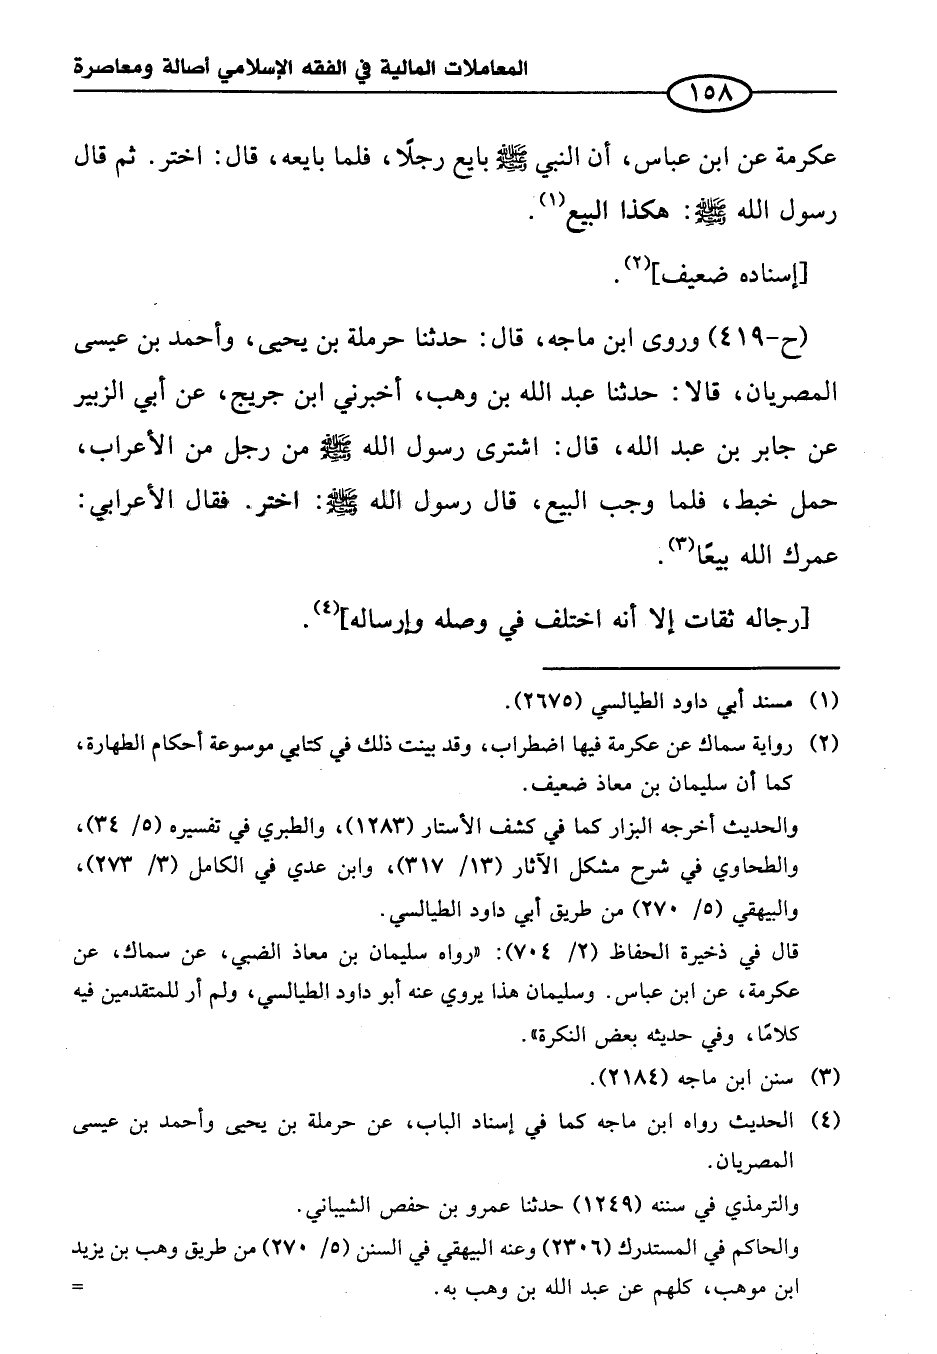 المعاملات المالية في الفقه الإسلامي أصالة ومعاصرة
١٥٨
عكرمة عن ابن عباس، أن النبي ﷺ بايع رجلًا، فلما بايعه، قال: اختر. ثم قال
رسول الله ﷺ: هكذا البيع(١).
[إسناده ضعيف](٢).
(ح-٤١٩) وروى ابن ماجه، قال: حدثنا حرملة بن يحيى، وأحمد بن عيسى
المصريان، قالا: حدثنا عبد الله بن وهب، أخبرني ابن جريج، عن أبي الزبير
عن جابر بن عبد الله، قال: اشترى رسول الله ﷺ من رجل من الأعراب،
حمل خبط، فلما وجب البيع، قال رسول الله ﷺ: اختر. فقال الأعرابي:
عمرك الله بيعًا(٣).
[رجاله ثقات إلا أنه اختلف في وصله وإرساله](٤).
(١) مسند أبي داود الطيالسي (٢٦٧٥).
(٢) رواية سماك عن عكرمة فيها اضطراب، وقد بينت ذلك في كتابي موسوعة أحكام الطهارة،
كما أن سليمان بن معاذ ضعيف.
والحديث أخرجه البزار كما في كشف الأستار (١٢٨٣)، والطبري في تفسيره (٥/ ٣٤)،
والطحاوي في شرح مشكل الآثار (١٣/ ٣١٧)، وابن عدي في الكامل (٣/ ٢٧٣)،
والبيهقي (٥/ ٢٧٠) من طريق أبي داود الطيالسي.
قال في ذخيرة الحفاظ (٢/ ٧٠٤): «رواه سليمان بن معاذ الضبي، عن سماك، عن
عكرمة، عن ابن عباس. وسليمان هذا يروي عنه أبو داود الطيالسي، ولم أر للمتقدمين فيه
كلامًا، وفي حديثه بعض النكرة».
(٣) سنن ابن ماجه (٢١٨٤).
(٤) الحديث رواه ابن ماجه كما في إسناد الباب، عن حرملة بن يحيى وأحمد بن عيسى
المصريان.
والترمذي في سننه (١٢٤٩) حدثنا عمرو بن حفص الشيباني.
والحاكم في المستدرك (٢٣٠٦) وعنه البيهقي في السنن (٥/ ٢٧٠) من طريق وهب بن يزيد
ابن موهب، كلهم عن عبد الله بن وهب به. =